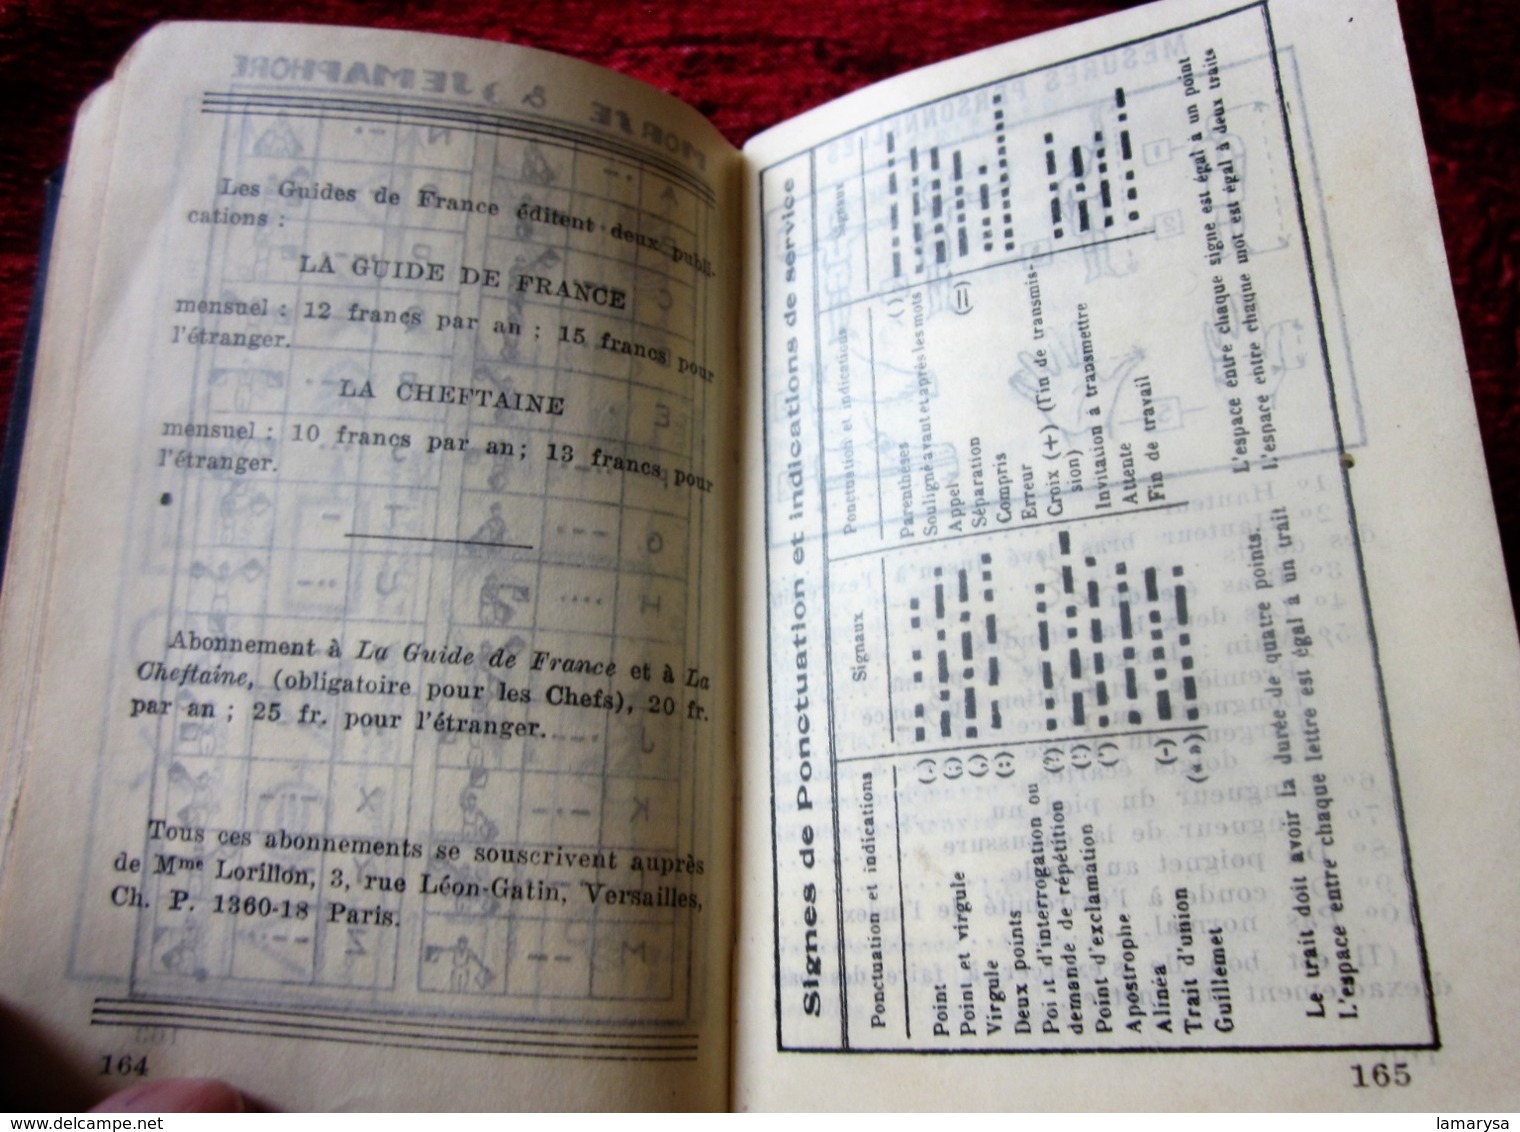 Les Guides de France éditent deux publi-
cations :
LA GUIDE DE FRANCE
mensuel : 12 francs par an ; 15 francs pour
l'étranger.
LA CHEFTAINE
mensuel : 10 francs par an ; 13 francs pour
l'étranger.
Abonnement à La Guide de France et à La
Cheftaine, (obligatoire pour les Chefs), 20 fr.
par an ; 25 fr. pour l'étranger.
Tous ces abonnements se souscrivent auprès
de Mme Lorillon, 3, rue Léon-Gatin, Versailles,
Ch. P. 1360-18 Paris.
164
Signes de Ponctuation et indications de service
Ponctuation et indications
Signaux
Ponctuation et indications
Signaux
Point (.)
Point et virgule (;)
Virgule (,)
Deux points (:)
Point d'interrogation ou (?)
demande de répétition
Point d'exclamation (!)
Apostrophe (')
Alinéa
Trait d'union (-)
Guillemet (« »)
Parenthèses ( )
Souligné avant et après les mots
Appel
Séparation (=)
Compris
Erreur
Croix (+) (Fin de transmis-
sion)
Invitation à transmettre
Attente
Fin de travail
Le trait doit avoir la durée de quatre points.
L'espace entre chaque lettre est égal à un trait
L'espace entre chaque signe est égal à un point
L'espace entre chaque mot est égal à deux traits
165
delcampe.net
lamarysa